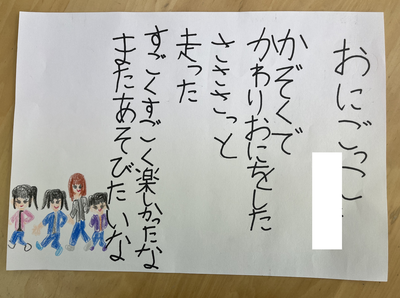 おにごっこ
かぞくで
かわりおにをした
さささっと
走った
すごくすごく楽しかったな
またあそびたいな